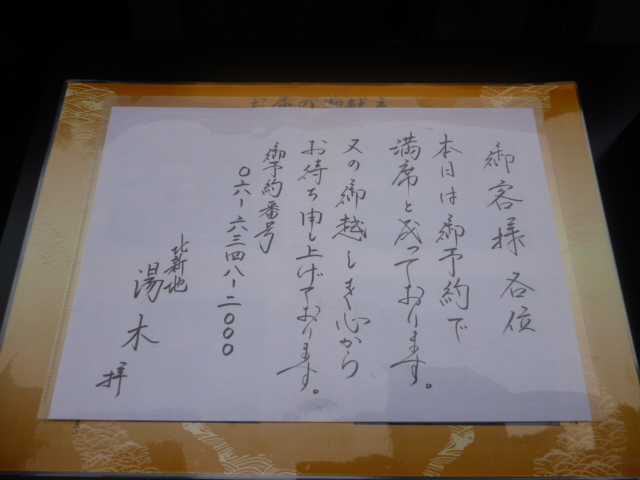 御客様各位
本日は御予約で
満席と成っております。
又の御越しを心から
お待ち申し上げております。
御予約番号
〇六-六三四八-二〇〇〇
北新地
湯木
拝